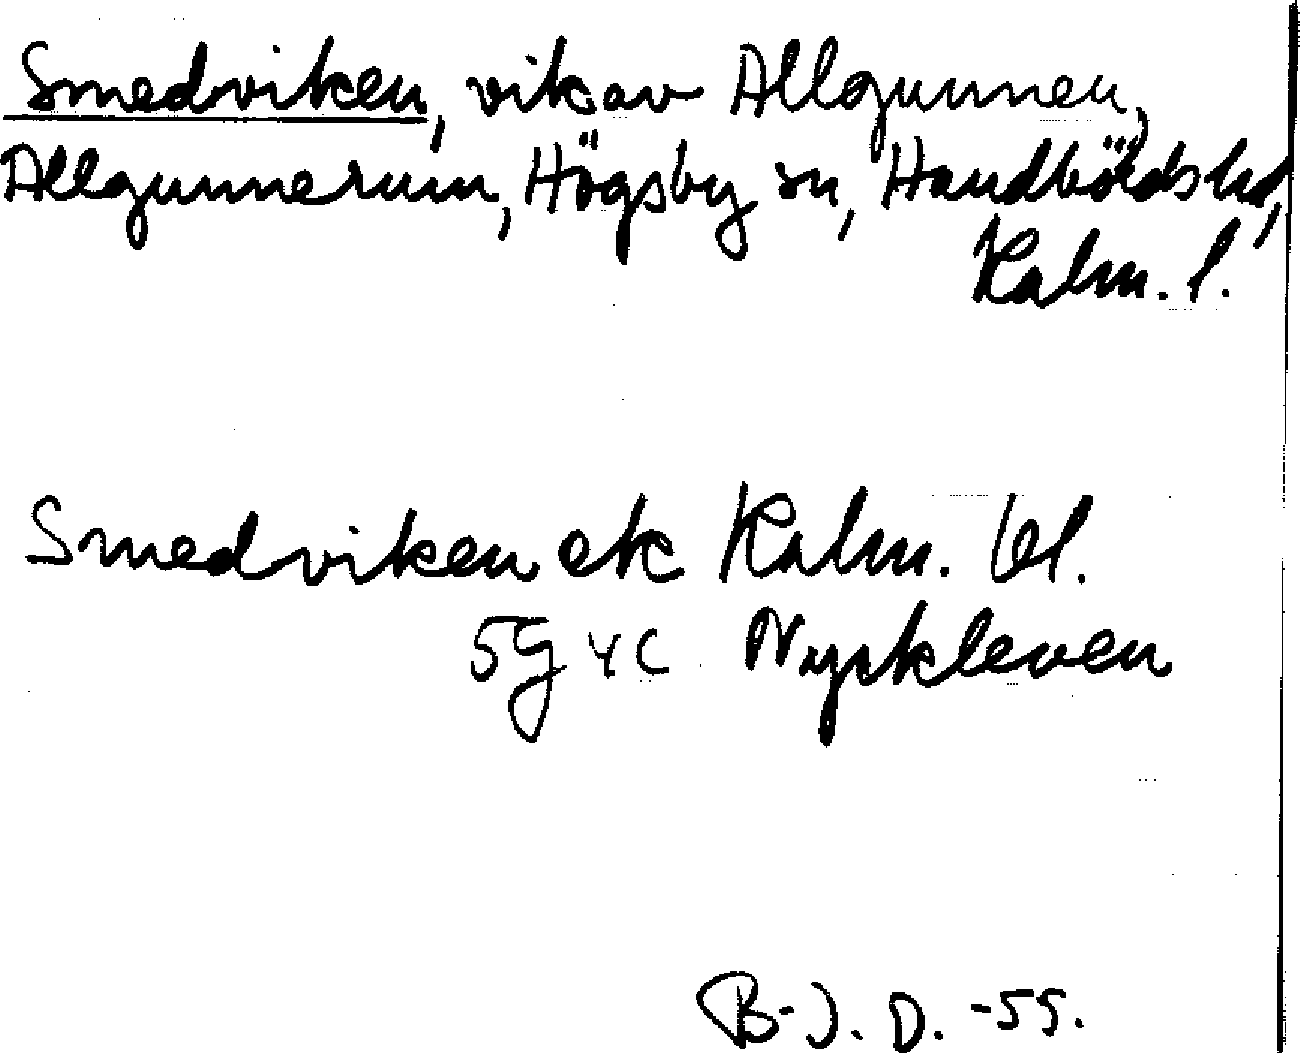 Smedviken, vik av Allgunnen,
Allgunnerum, Högsby sn, Handbörds hd,
Kalm. l.
Smedviken ek Kalm. l.
5G 4c Nyckleven
B-J. D. -55.